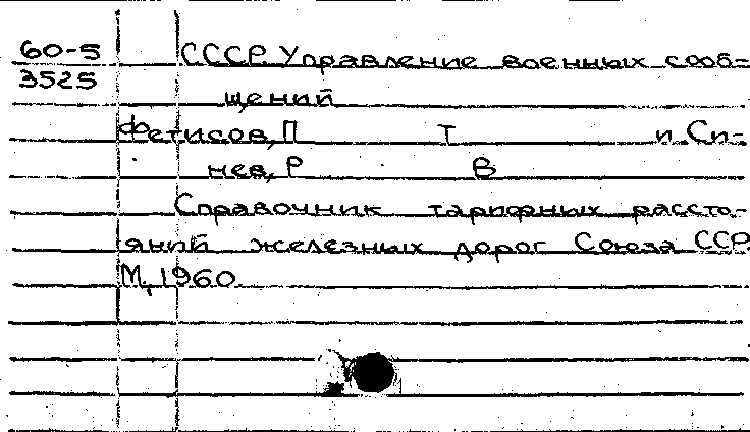 60-5 СССР. Управление военных сооб-
3525
щений
Фетисов, П Т и Си-
нев, Р В
Справочник тарифных рассто-
яний железных дорог Союза ССР.
М., 1960.